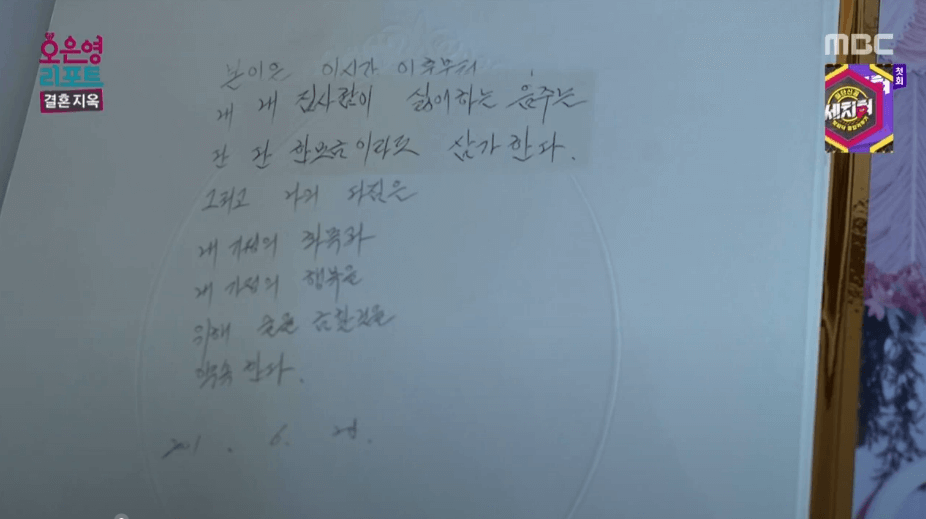 오은영
리포트
결혼 지옥
MBC
첫회
세치혀
본인은 이시간 이후부터
내 집사람이 싫어하는 음주는
단 한모금이라도 삼가 한다.
그리고 나의 다짐은
내 가정의 화목과
내 가정의 행복을
위해 술을 금할것을
약속 한다.
6.